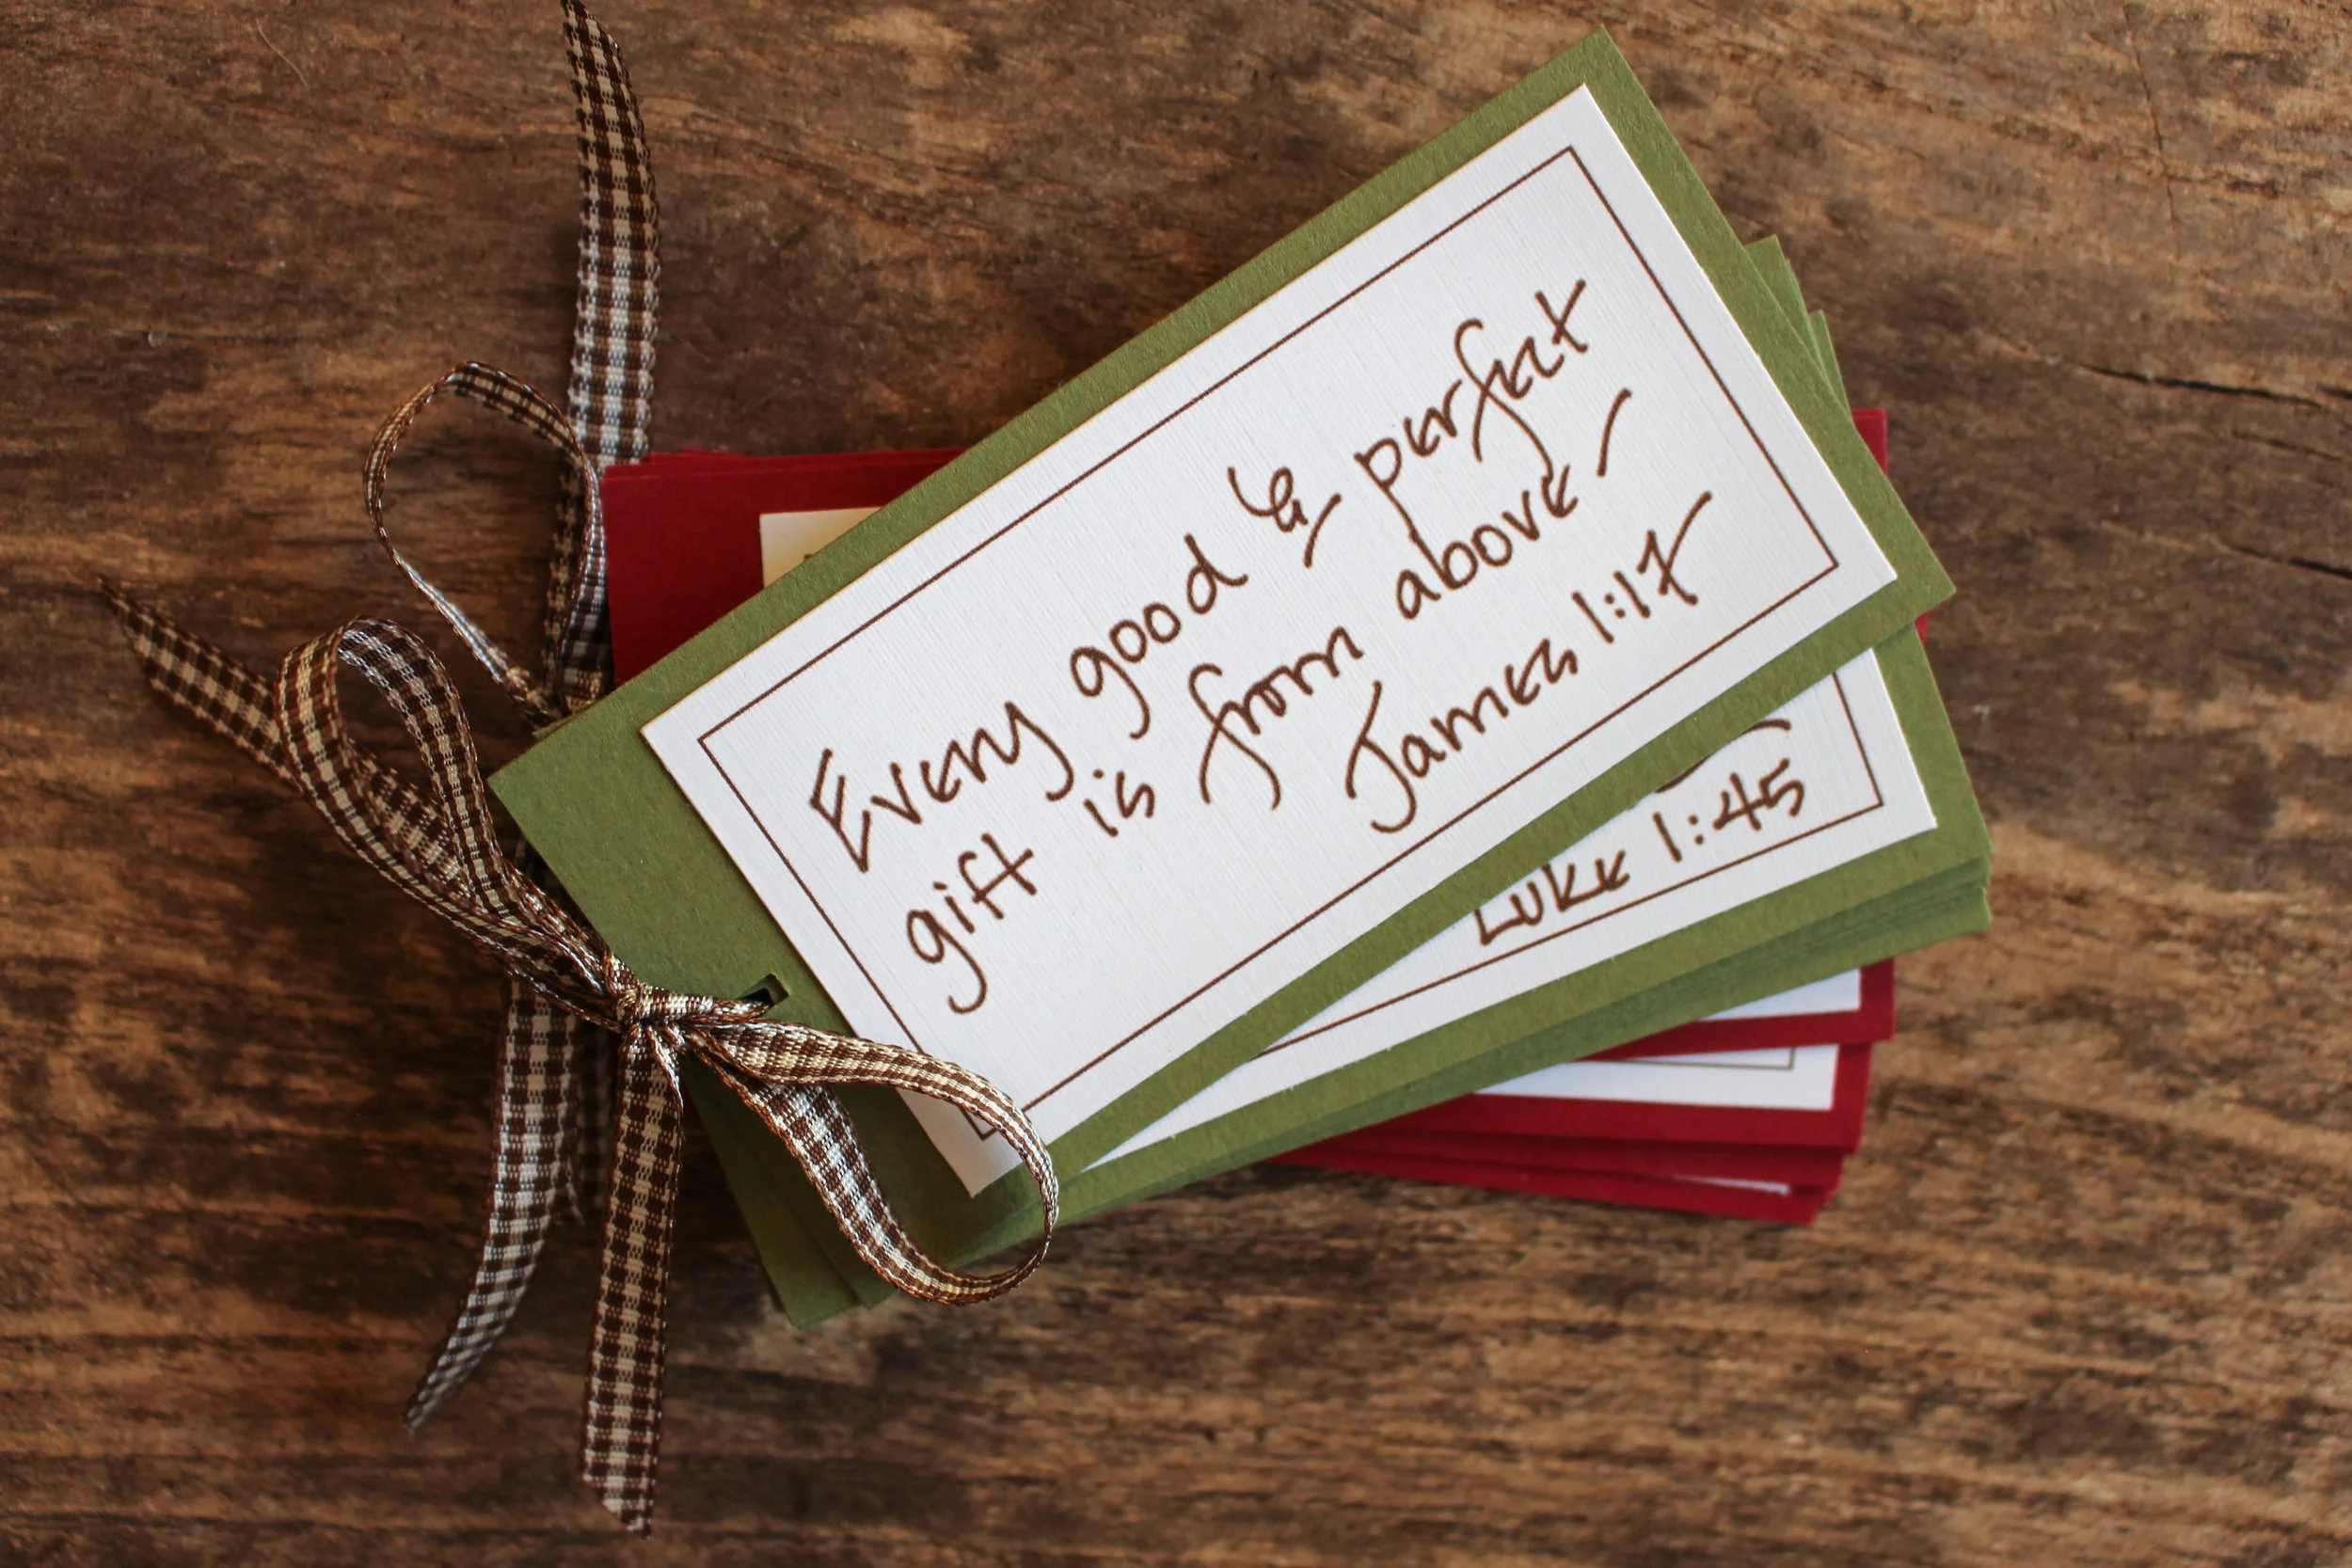 Every good & perfect
gift is from above -
James 1:17
Luke 1:45